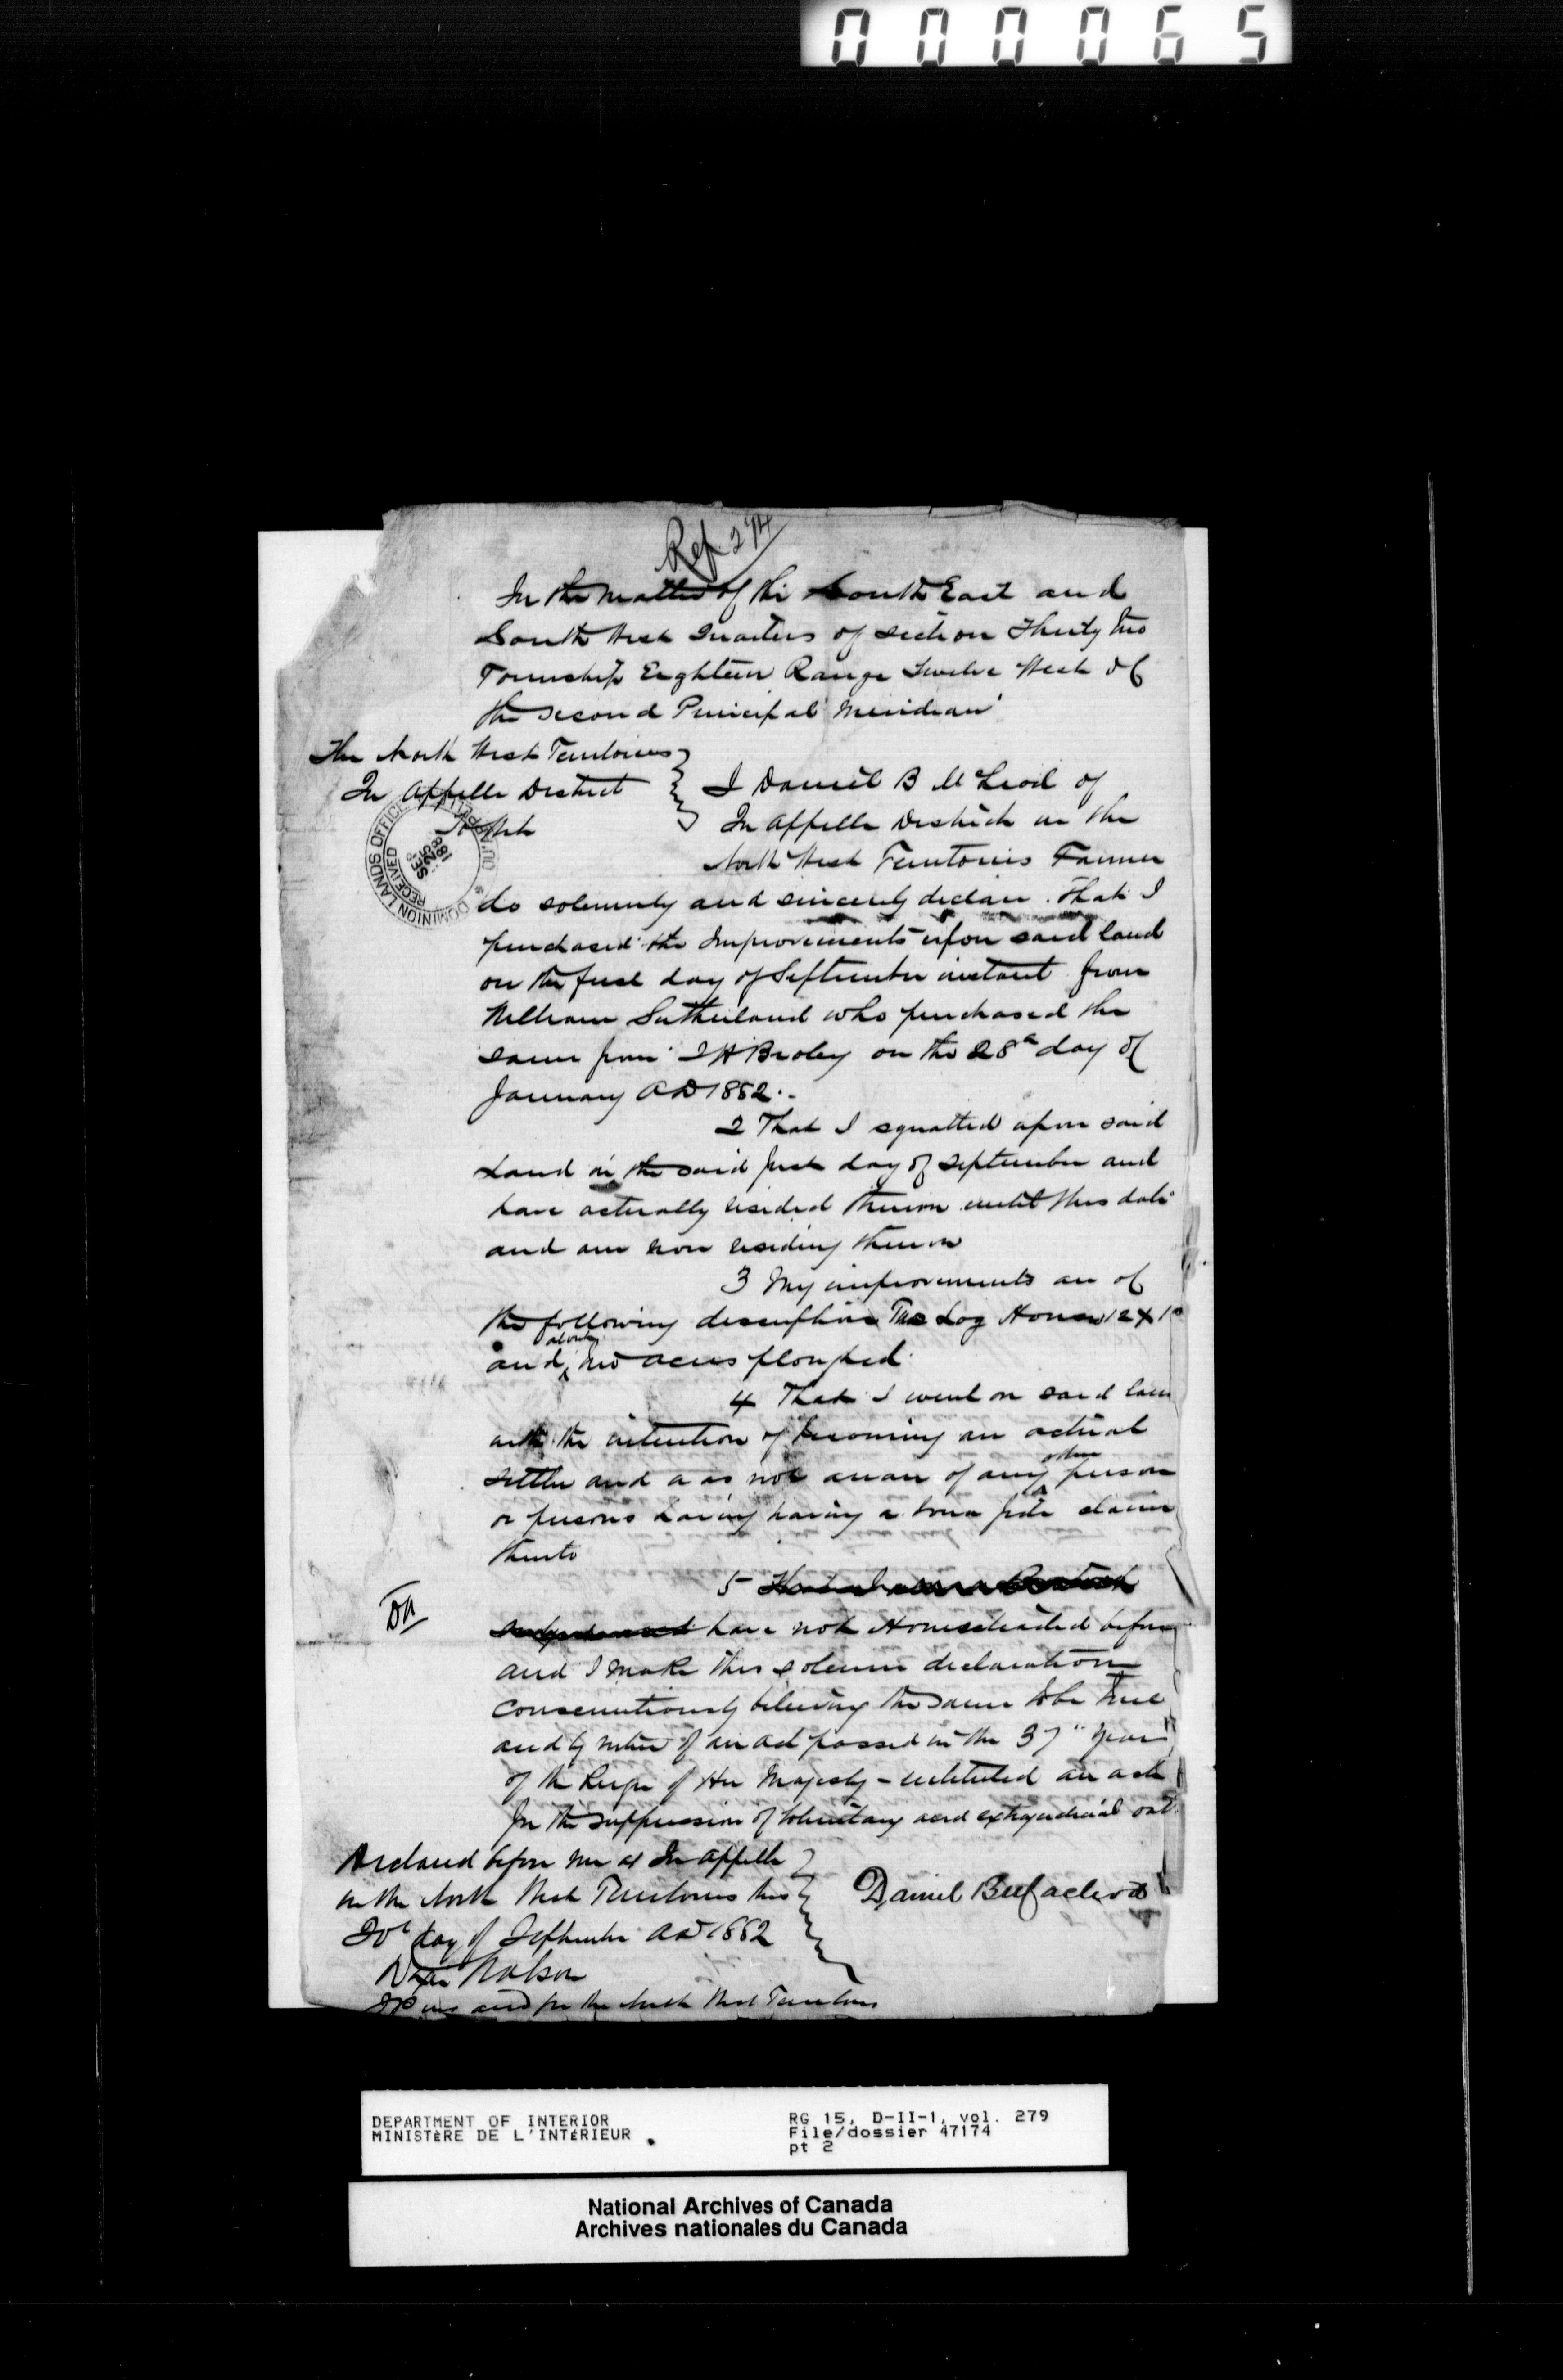 000065
Ref 274
In the matter of the South East and
South West Quarters of section Thirty two
Township Eighteen Range Twelve West of
the second Principal Meridian
The North West Territories
Qu Appelle District
To Wit
I Daniel B McLeod of
Qu Appelle District in the
North West Territories Farmer
do solemnly and sincerely declare That I
purchased the Improvements upon said land
on the first day of September instant from
William Sutherland who purchased the
same from on the 28th day of
January AD 1882.-
2 That I squatted upon said
Land on the said first day of September and
have actually resided thereon until this date
and am now residing thereon
3 My improvements are of
the following description Log House 12 x 1
and about two acres ploughed
4 That I went on said lan
with the intention of becoming an actual
settler and was not aware of any other person
or persons having having a bona fide claim
thereto
5
have not Homesteaded before
and I make this solemn declaration
conscientiously believing the same to be true
and by virtue of an act passed in the 37" year
of the Reign of Her Majesty - intituled an act
for the suppression of voluntary and extrajudicial oat
Declared before me at Qu Appelle
in the North West Territories this
20th day of September AD 1882
Daniel B McLeod
JP in and for the North West Territories
DOMINION LANDS OFFICE QU'APPELLE
RECEIVED
SEP 25 188
DEPARTMENT OF INTERIOR
MINISTÈRE DE L'INTÉRIEUR
RG 15, D-II-1, vol. 279
File/dossier 47174
pt 2
National Archives of Canada
Archives nationales du Canada